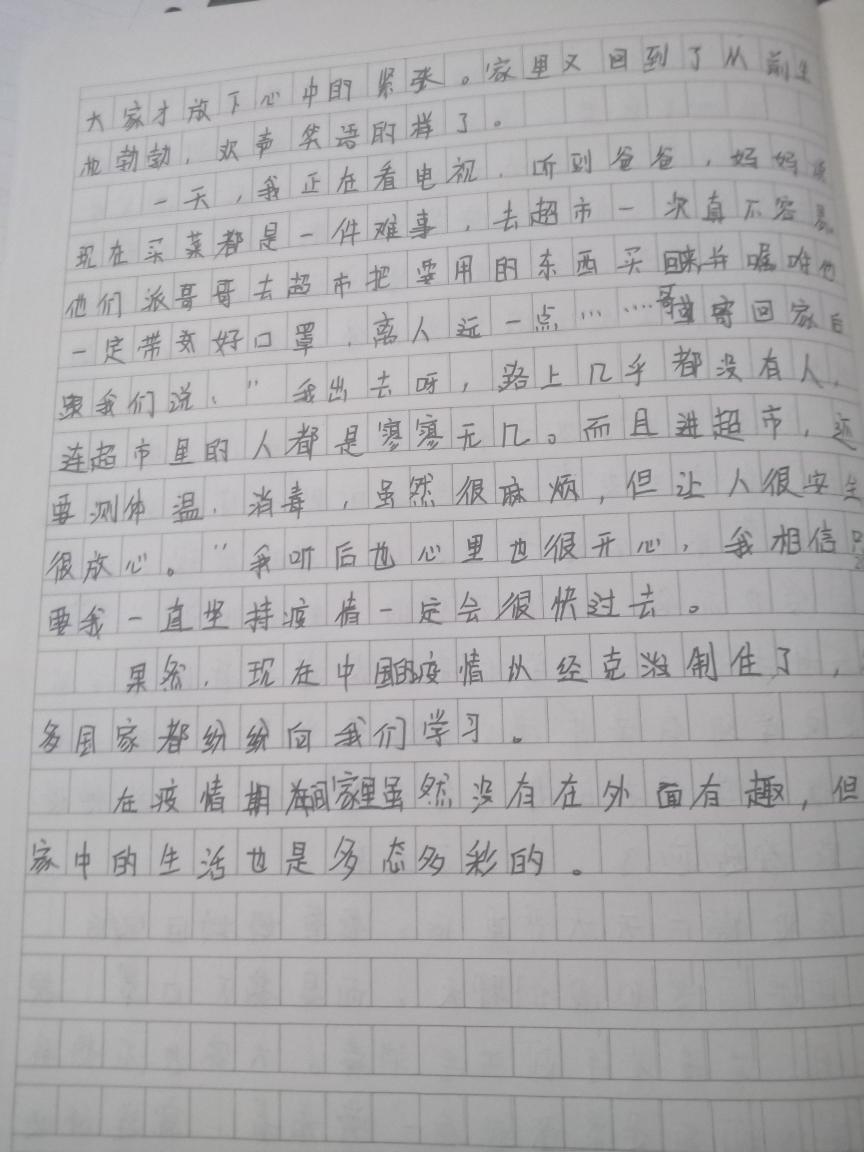 大家才放下心中的紧张。家里又回到了从前生
机勃勃，欢声笑语的样了。
一天，我正在看电视，听到爸爸，妈妈说
现在买菜都是一件难事，去超市一次真不容易
他们派哥哥去超市把要用的东西买回来并嘱咐他
一定带好口罩，离人远一点……哥哥回家后
跟我们说：“我出去呀，路上几乎都没有人，
连超市里的人都是寥寥无几。而且进超市，还
要测体温，消毒，虽然很麻烦，但让人很安全
很放心。”我听后也心里也很开心，我相信只
要我一直坚持疫情一定会很快过去。
果然，现在中国的疫情以经克制住了，
多国家都纷纷向我们学习。
在疫情期间家里虽然没有在外面有趣，但
家中的生活也是多态多彩的。